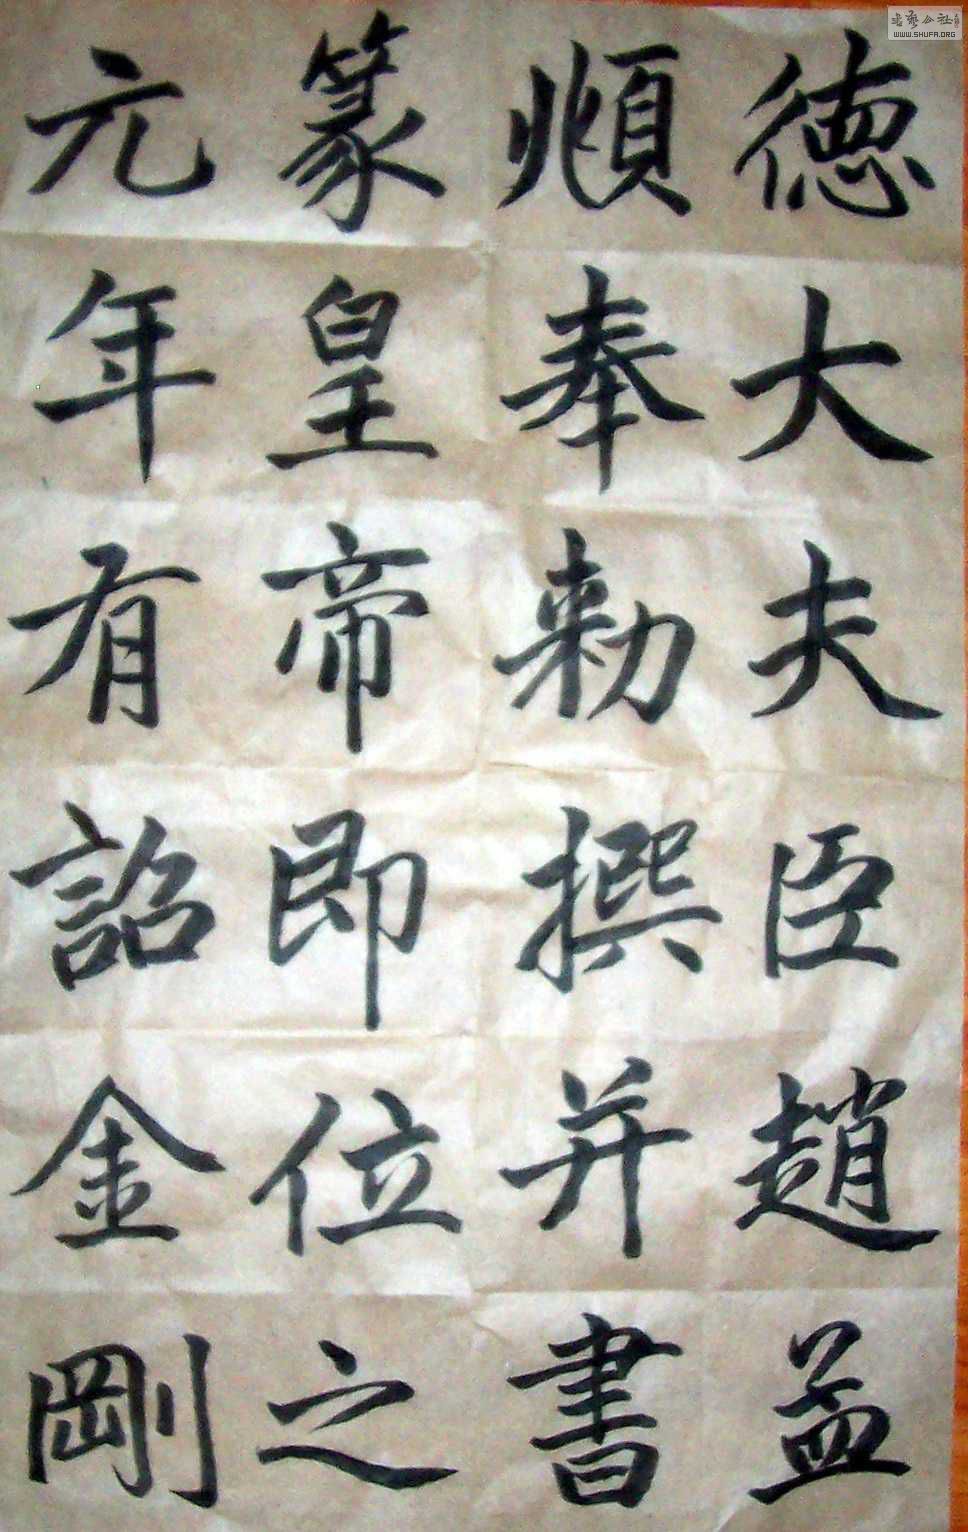 德大夫臣趙孟
頫奉勅撰并書
篆皇帝即位之
元年有詔金剛
書藝公社
WWW.SHUFA.ORG